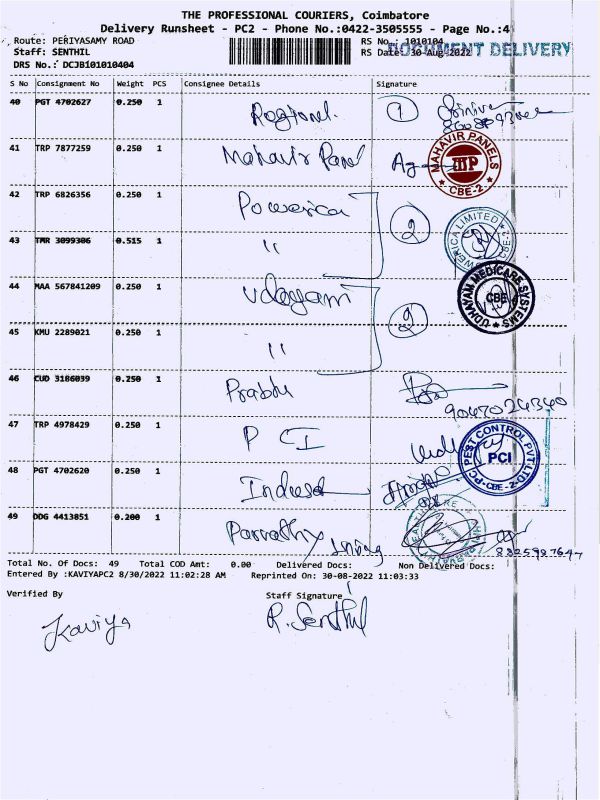 THE PROFESSIONAL COURIERS, Coimbatore
Delivery Runsheet - PC2 - Phone No.:0422-3505555 - Page No.:4
Route: PERIYASAMY ROAD RS No.: 1010104
Staff: SENTHIL RS Date: 30-Aug-2022 DOCUMENT DELIVERY
DRS No.: DCJB101010404
S No Consignment No Weight PCS Consignee Details Signature
40 PGT 4702627 0.250 1 Regional. 1
41 TRP 7877259 0.250 1 Mahavir Panel MAHAVIR PANELS MP CBE-2
42 TRP 6826356 0.250 1 Powerica 2
43 TMR 3099306 0.515 1 " POWERICA LIMITED CBE-2
44 MAA 567841209 0.250 1 Udayam UDHAYAM MEDICARE SYSTEMS CBE
45 KMU 2289021 0.250 1 " 2
46 CUD 3186039 0.250 1 Prabhu 9047024340
47 TRP 4978429 0.250 1 P C I PCI PEST CONTROL PVT LTD CBE-2
48 PGT 4702620 0.250 1
49 DDG 4413851 0.200 1 Parvathy
Total No. Of Docs: 49 Total COD Amt: 0.00 Delivered Docs: Non Delivered Docs:
Entered By :KAVIYAPC2 8/30/2022 11:02:28 AM Reprinted On: 30-08-2022 11:03:33
Verified By Staff Signature
Kaviya R. Senthil